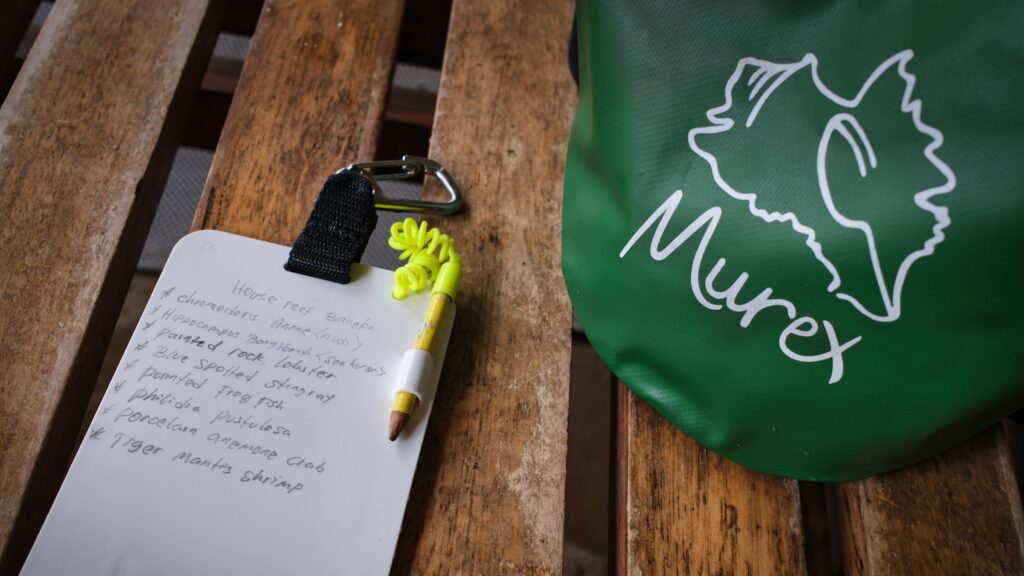 House reef Bangka
* chromodoris Annae (nudi)
* Hippocampus Bargibanti (sea horse)
* painted rock lobster
* Blue spotted stingray
* painted frog fish
* philidra pustulosa
* porcelain anemone crab
* Tiger Mantis shrimp
Murex